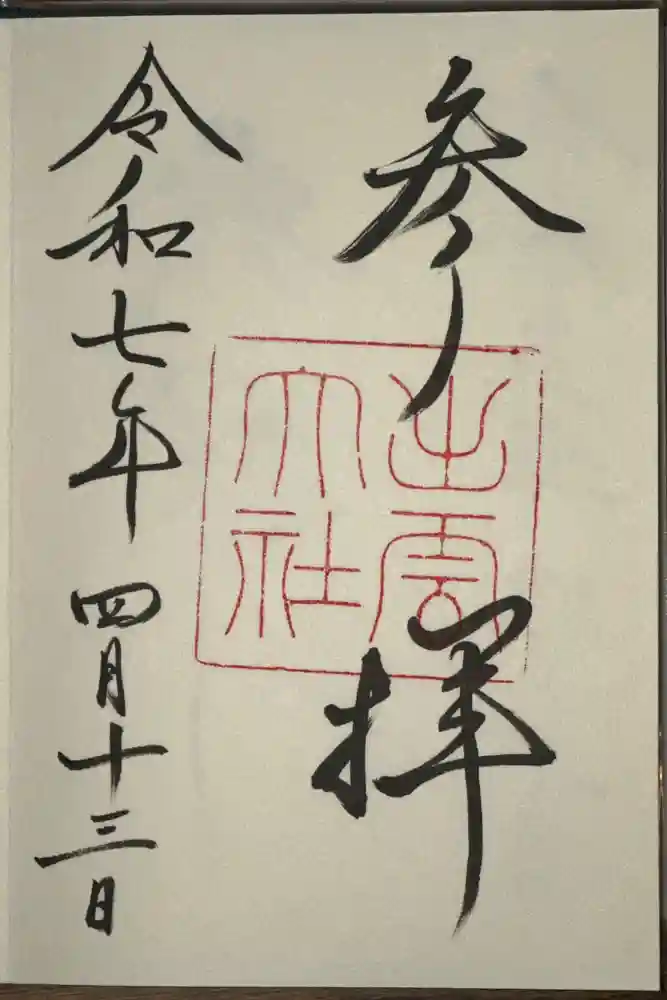 参拝
出雲
大社
令和七年四月十三日